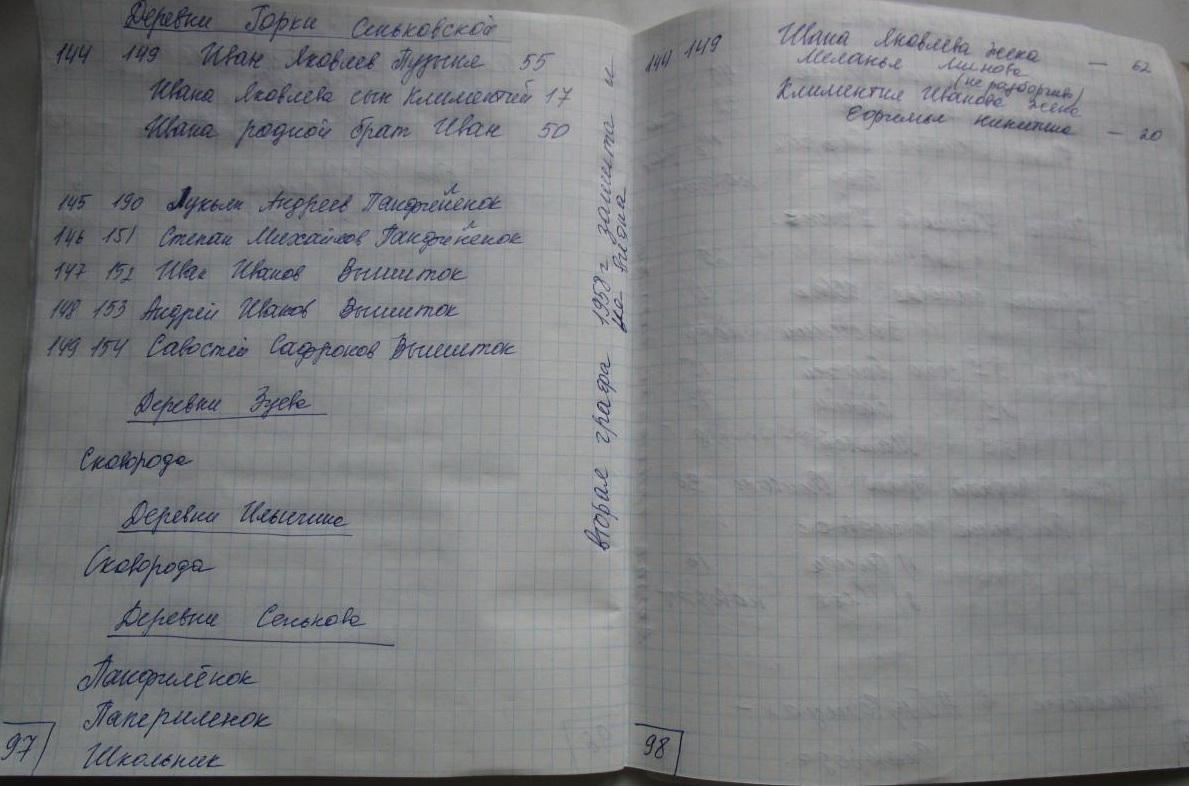 Деревни Горки Сеньковской
144 149 Иван Яковлев Пузыня 55
Ивана Яковлева сын Климентий 17
Ивана родной брат Иван 50
145 190 Лукьян Андреев Панфиленок
146 151 Степан Михайлов Панфиленок
147 152 Иван Иванов Вышиток
148 153 Андрей Иванов Вышиток
149 154 Савостей Сафронов Вышиток
Деревни Зуева
Сковорода
Деревни Ильигино
Сковорода
Деревни Сенькова
Панфилёнок
Папериленок
Школьник
97
вторая графа 1958 г защита и
144 149 Ивана Яковлева жена
Меланья — 62
(не разборчиво)
Климентия Иванова жена
Ефимья Никитина — 20
98